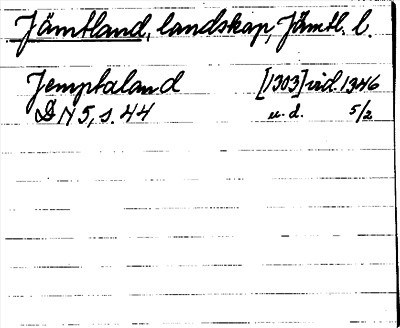 Jämtland, landskap, Jämtl. l.
Jemptaland [1303] vid. 1346
DN 5, s. 44 u. d. 5/2